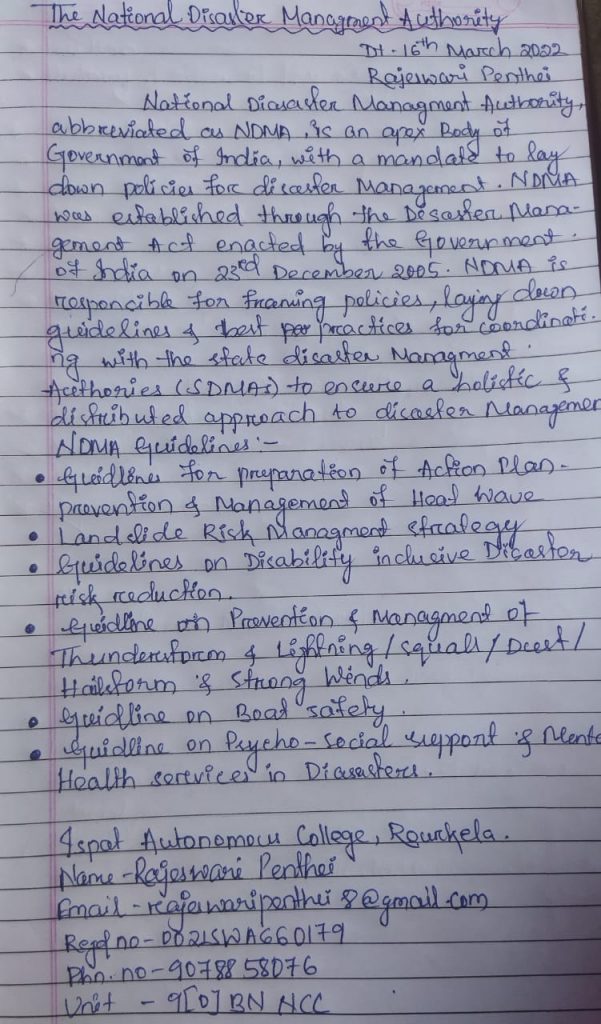 The National Disaster Managment Authority
Dt. 16th March 2022
Rajeswari Penthei
National Diasaster Managment Authority,
abbreviated as NDMA, is an apex Body of
Government of India, with a mandate to lay
down policies for disaster Management. NDMA
was established through the Desaster Mana-
gement Act enacted by the Government
of India on 23rd December 2005. NDMA is
responcible for framing policies, laying down
guidelines & best practices for coordinati-
ng with the state disaster Managment
Authories (SDMAs) to ensure a holistic &
distributed approach to disaster Managemen
NDMA Guidelines:-
• Guidlines for preparation of Action Plan-
prevention & Management of Heat Wave
• Landslide Risk Managment strategy
• Guidelines on Disability inclusive Disaster
risk reduction.
• Guidline on Prevention & Managment of
Thunderstorm & Lightning/squall/Dust/
Hailstorm & Strong Winds.
• Guidline on Boat safety.
• Guidline on Psycho-social support & Menta
Health services in Diasasters.
Ispat Autonomous College, Rourkela.
Name-Rajeswari Penthei
Email-rajeswaripenthei8@gmail.com
Regd no-OD21SWA660179
Phn. no-9078858076
Unit - 9[O] BN NCC